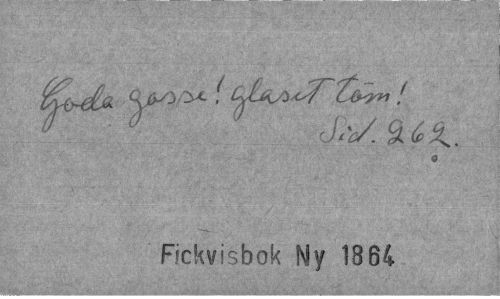 Goda gosse! glaset töm!
Sid. 262.
Fickvisbok Ny 1864